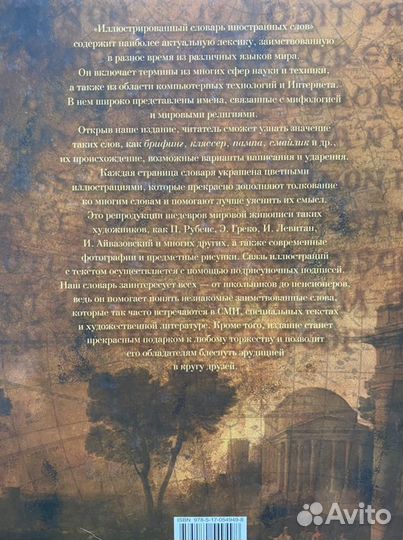 «Иллюстрированный словарь иностранных слов»
содержит наиболее актуальную лексику, заимствованную
в разное время из различных языков мира.
Он включает термины из многих сфер науки и техники,
а также из области компьютерных технологий и Интернета.
В нем широко представлены имена, связанные с мифологией
и мировыми религиями.
Открыв наше издание, читатель сможет узнать значение
таких слов, как брифинг, кляссер, пампа, смайлик и др.,
их происхождение, возможные варианты написания и ударения.
Каждая страница словаря украшена цветными
иллюстрациями, которые прекрасно дополняют толкование
ко многим словам и помогают лучше уяснить их смысл.
Это репродукции шедевров мировой живописи таких
художников, как П. Рубенс, Э. Греко, И. Левитан,
И. Айвазовский и многих других, а также современные
фотографии и предметные рисунки. Связь иллюстраций
с текстом осуществляется с помощью подрисуночных подписей.
Наш словарь заинтересует всех — от школьников до пенсионеров,
ведь он помогает понять незнакомые заимствованные слова,
которые так часто встречаются в СМИ, специальных текстах
и художественной литературе. Кроме того, издание станет
прекрасным подарком к любому торжеству и позволит
его обладателям блеснуть эрудицией
в кругу друзей.
ISBN 978-5-17-054949-8
Avito